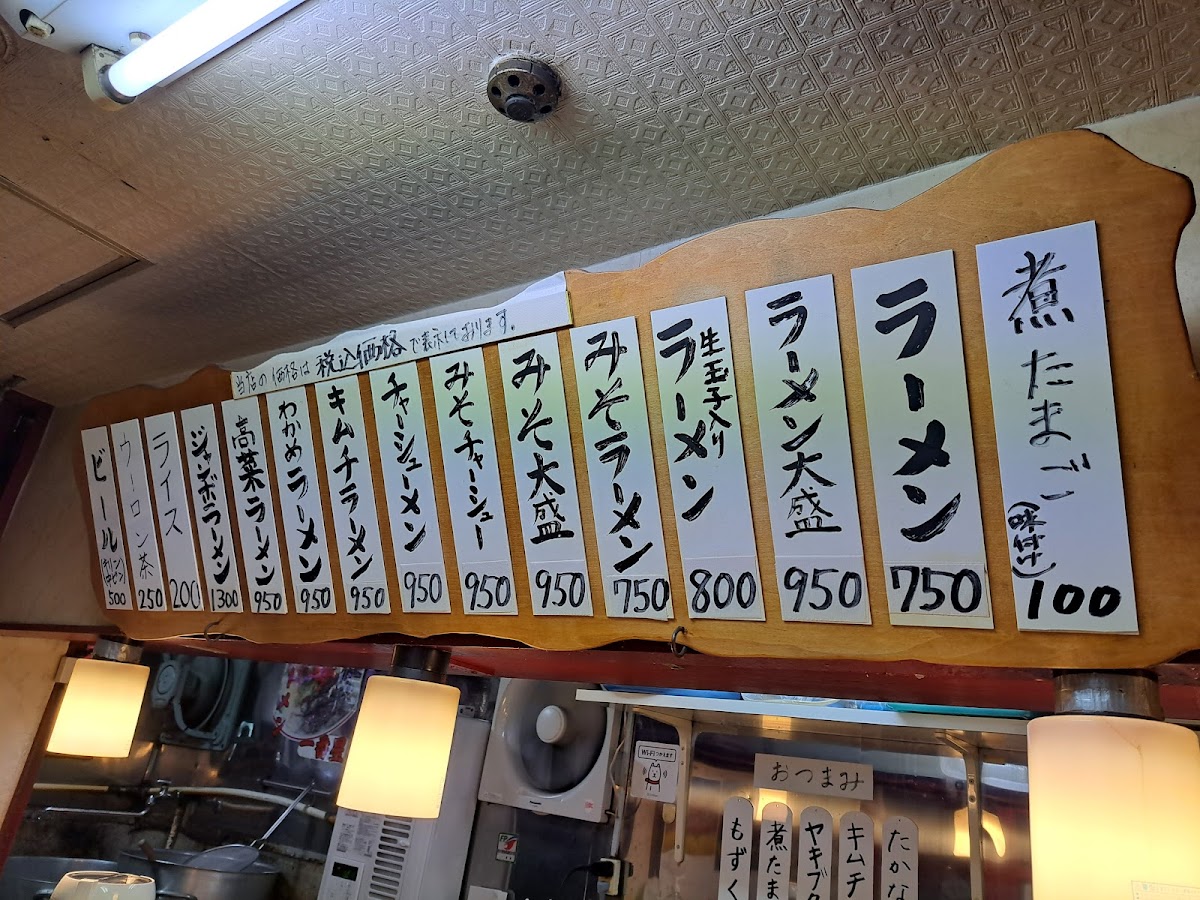 煮たまご
(味付け)
100
ラーメン
750
ラーメン大盛
950
生玉子入り
ラーメン
800
みそラーメン
750
みそ大盛
950
みそチャーシュー
950
チャーシューメン
950
キムチラーメン
950
わかめラーメン
950
高菜ラーメン
950
ジャンボラーメン
1300
ライス
200
ウーロン茶
250
ビール
(キリン
中ビン)
500
当店の価格は税込価格で表示しております。
Wi-Fiつかえます
おつまみ
たかな
キムチ
ヤキブタ
煮たま
もずく